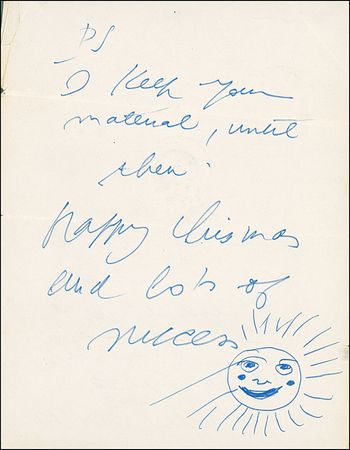 PS
I Keep your
material, until
then.
happy Chrismas
and lots of
success